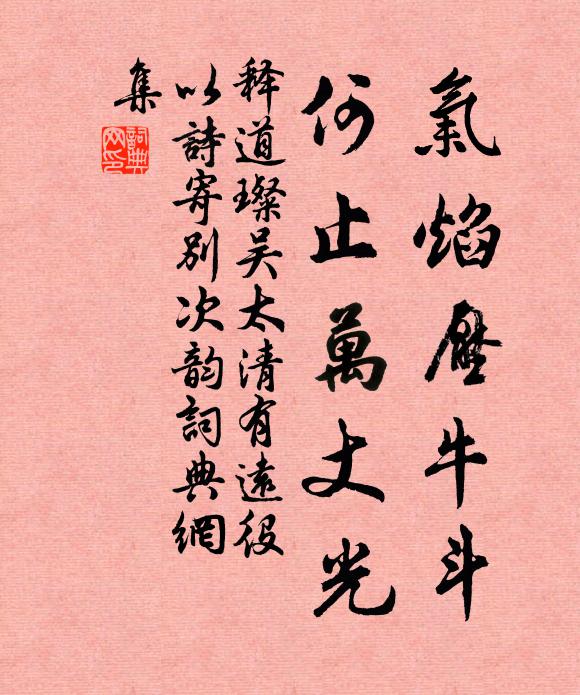 氣焰壓牛斗
何止萬丈光
释道璨吴太清有遠役
以詩寄別次韵詞典網
集
詞典
网印